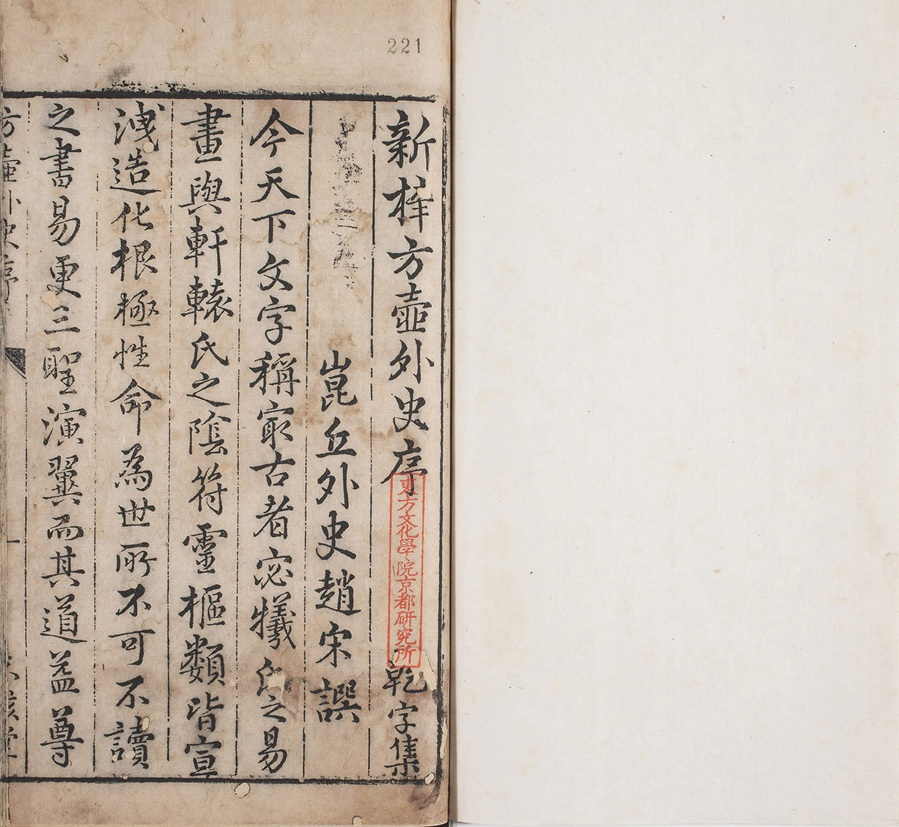 221
新梓方壺外史序
乾字集
東方文化學院京都研究所
崑丘外史趙宋譔
今天下文字稱冣古者宓犧氏之易
畫與軒轅氏之陰符靈樞類皆宣
洩造化根極性命為世所不可不讀
之書易更三聖演翼而其道益尊
方壺外史序
一